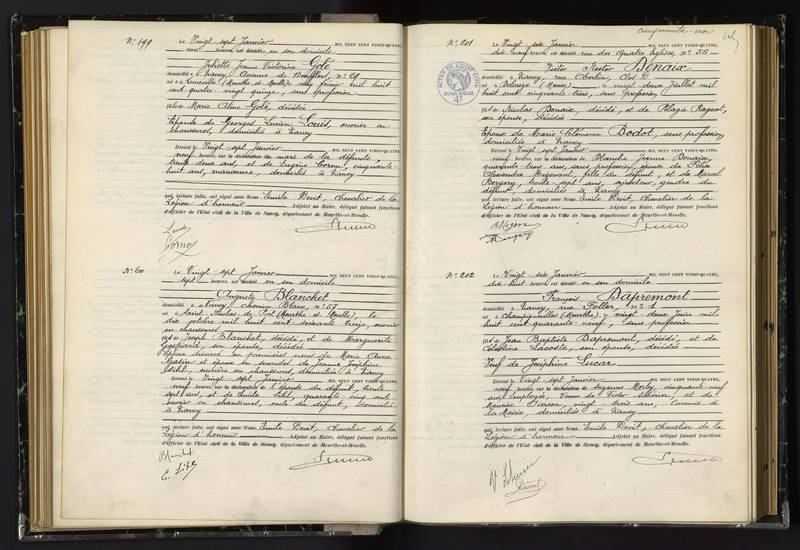 N° 199
Le Vingt sept Janvier MIL NEUF CENT VINGT-QUATRE,
heures EST DÉCÉDÉE en son domicile
Juliette Jeanne Victorine Golé
domiciliée à Nancy, Avenue de Boufflers, N° 29
née à Lunéville (Meurthe et Moselle) février mil huit
cent quatre vingt quinze, sans profession
fille de Marie Aline Golé, décédée
Epouse de Georges Lucien Louis, ouvrier en
chaussures, domicilié à Nancy
Dressé le Vingt sept Janvier MIL NEUF CENT VINGT-QUATRE,
neuf heures, sur la déclaration du mari de la défunte
trente deux ans, et de Eugène Cornu, cinquante
huit ans, manœuvre, domiciliés à Nancy
qui, lecture faite, ont signé avec Nous Emile Devit, Chevalier de la
Légion d'honneur Adjoint au Maire, délégué faisant fonctions
d'officier de l'Etat civil de la Ville de Nancy, département de Meurthe-et-Moselle.
N° 200
Le Vingt sept Janvier MIL NEUF CENT VINGT-QUATRE,
sept heures EST DÉCÉDÉ en son domicile
Auguste Blanchet
domicilié à Nancy, chemin Blanc, n° 57
né à Saint Nicolas de Port (Meurthe et Moselle), le
dix octobre mil huit cent soixante treize, ouvrier
en chaussures
fils de Joseph Blanchet, décédé, et de Marguerite
son épouse, décédée
Epoux divorcé en premières noces de Marie Anne
et époux en secondes de Jeanne Joséphine
ouvrière en chaussures, domiciliée à Nancy
Dressé le Vingt sept Janvier MIL NEUF CENT VINGT-QUATRE,
neuf heures, sur la déclaration de l'épouse du défunt, trente
sept ans, et de Emile quarante cinq ans
ouvrier en chaussures, oncle du défunt, domiciliés
à Nancy
qui, lecture faite, ont signé avec Nous Emile Devit, Chevalier de la
Légion d'honneur Adjoint au Maire, délégué faisant fonctions
d'officier de l'Etat civil de la Ville de Nancy, département de Meurthe-et-Moselle.
Blanchet
cinquante-un
N° 201
Le Vingt six Janvier MIL NEUF CENT VINGT-QUATRE,
dix neuf heures EST DÉCÉDÉ rue des Quatre Eglises, n° 55
Victor Nestor Benaix
domicilié à Nancy, rue Oberlin,
né à (Meuse) vingt deux Juillet mil
huit cent cinquante trois, sans profession
fils de Nicolas Benaix, décédé, et de Pélagie
son épouse, décédée
Epoux de Marie Clémence Bodot, sans profession,
domiciliée à Nancy
Dressé le Vingt sept Janvier MIL NEUF CENT VINGT-QUATRE,
neuf heures, sur la déclaration de Blanche Jeanne Benaix,
quarante ans, sans profession, épouse de Félix
Alexandre fille du défunt, et de Marcel
trente sept ans, ajusteur, gendre du
défunt, domiciliés à Nancy
qui, lecture faite, ont signé avec Nous Emile Devit, Chevalier de la
Légion d'honneur Adjoint au Maire, délégué faisant fonctions
d'officier de l'Etat civil de la Ville de Nancy, département de Meurthe-et-Moselle.
N° 202
Le Vingt six Janvier MIL NEUF CENT VINGT-QUATRE,
dix huit heures EST DÉCÉDÉ en son domicile
François Bapremont
domicilié à Nancy, rue Foller, n° 1
né à Champigneulles (Meurthe) vingt deux Juin mil
huit cent quarante neuf, sans profession
fils de Jean Baptiste Bapremont, décédé, et de
Célestine Lacoste, son épouse, décédée
Veuf de Joséphine Lucar
Dressé le Vingt sept Janvier MIL NEUF CENT VINGT-QUATRE,
neuf heures, sur la déclaration de Suzanne cinquante neuf
ans, employée, Veuve de Victor et de
Maurice vingt trois ans, Commis à
la Mairie, domiciliés à Nancy
qui, lecture faite, ont signé avec Nous Emile Devit, Chevalier de la
Légion d'honneur Adjoint au Maire, délégué faisant fonctions
d'officier de l'Etat civil de la Ville de Nancy, département de Meurthe-et-Moselle.